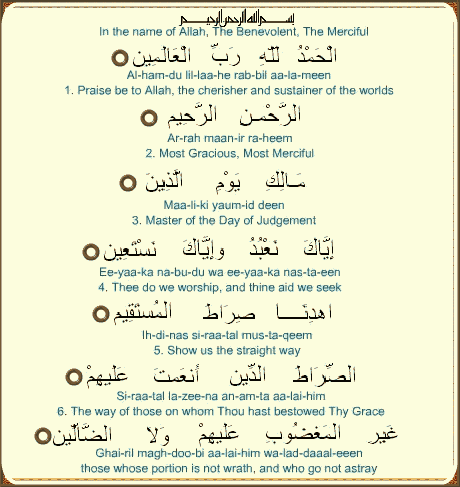 بسم الله الرحمن الرحيم
In the name of Allah, The Benevolent, The Merciful
الْحَمْدُ للّهِ رَبِّ الْعَالَمِين
Al-ham-du lil-laa-he rab-bil aa-la-meen
1. Praise be to Allah, the cherisher and sustainer of the worlds
الرَّحْمـنِ الرَّحِيم
Ar-rah maan-ir ra-heem
2. Most Gracious, Most Merciful
مَـالِكِ يَوْمِ الَّذِينَ
Maa-li-ki yaum-id deen
3. Master of the Day of Judgement
إِيَّاكَ نَعْبُدُ وإِيَّاكَ نَسْتَعِين
Ee-yaa-ka na-bu-du wa ee-yaa-ka nas-ta-een
4. Thee do we worship, and thine aid we seek
اهدِنَــــا صِرَاطَ المُستَقِيم
Ih-di-nas si-raa-tal mus-ta-qeem
5. Show us the straight way
الصِّرَاطَ الَّذِين أَنعَمتَ عَلَيهِمْ
Si-raa-tal la-zee-na an-am-ta aa-lai-him
6. The way of those on whom Thou hast bestowed Thy Grace
غَيرِ المَغضُوبِ عَلَيهِمْ وَلاَ الضَّالِّين
Ghai-ril magh-doo-bi aa-lai-him wa-lad-daaal-eeen
those whose portion is not wrath, and who go not astray